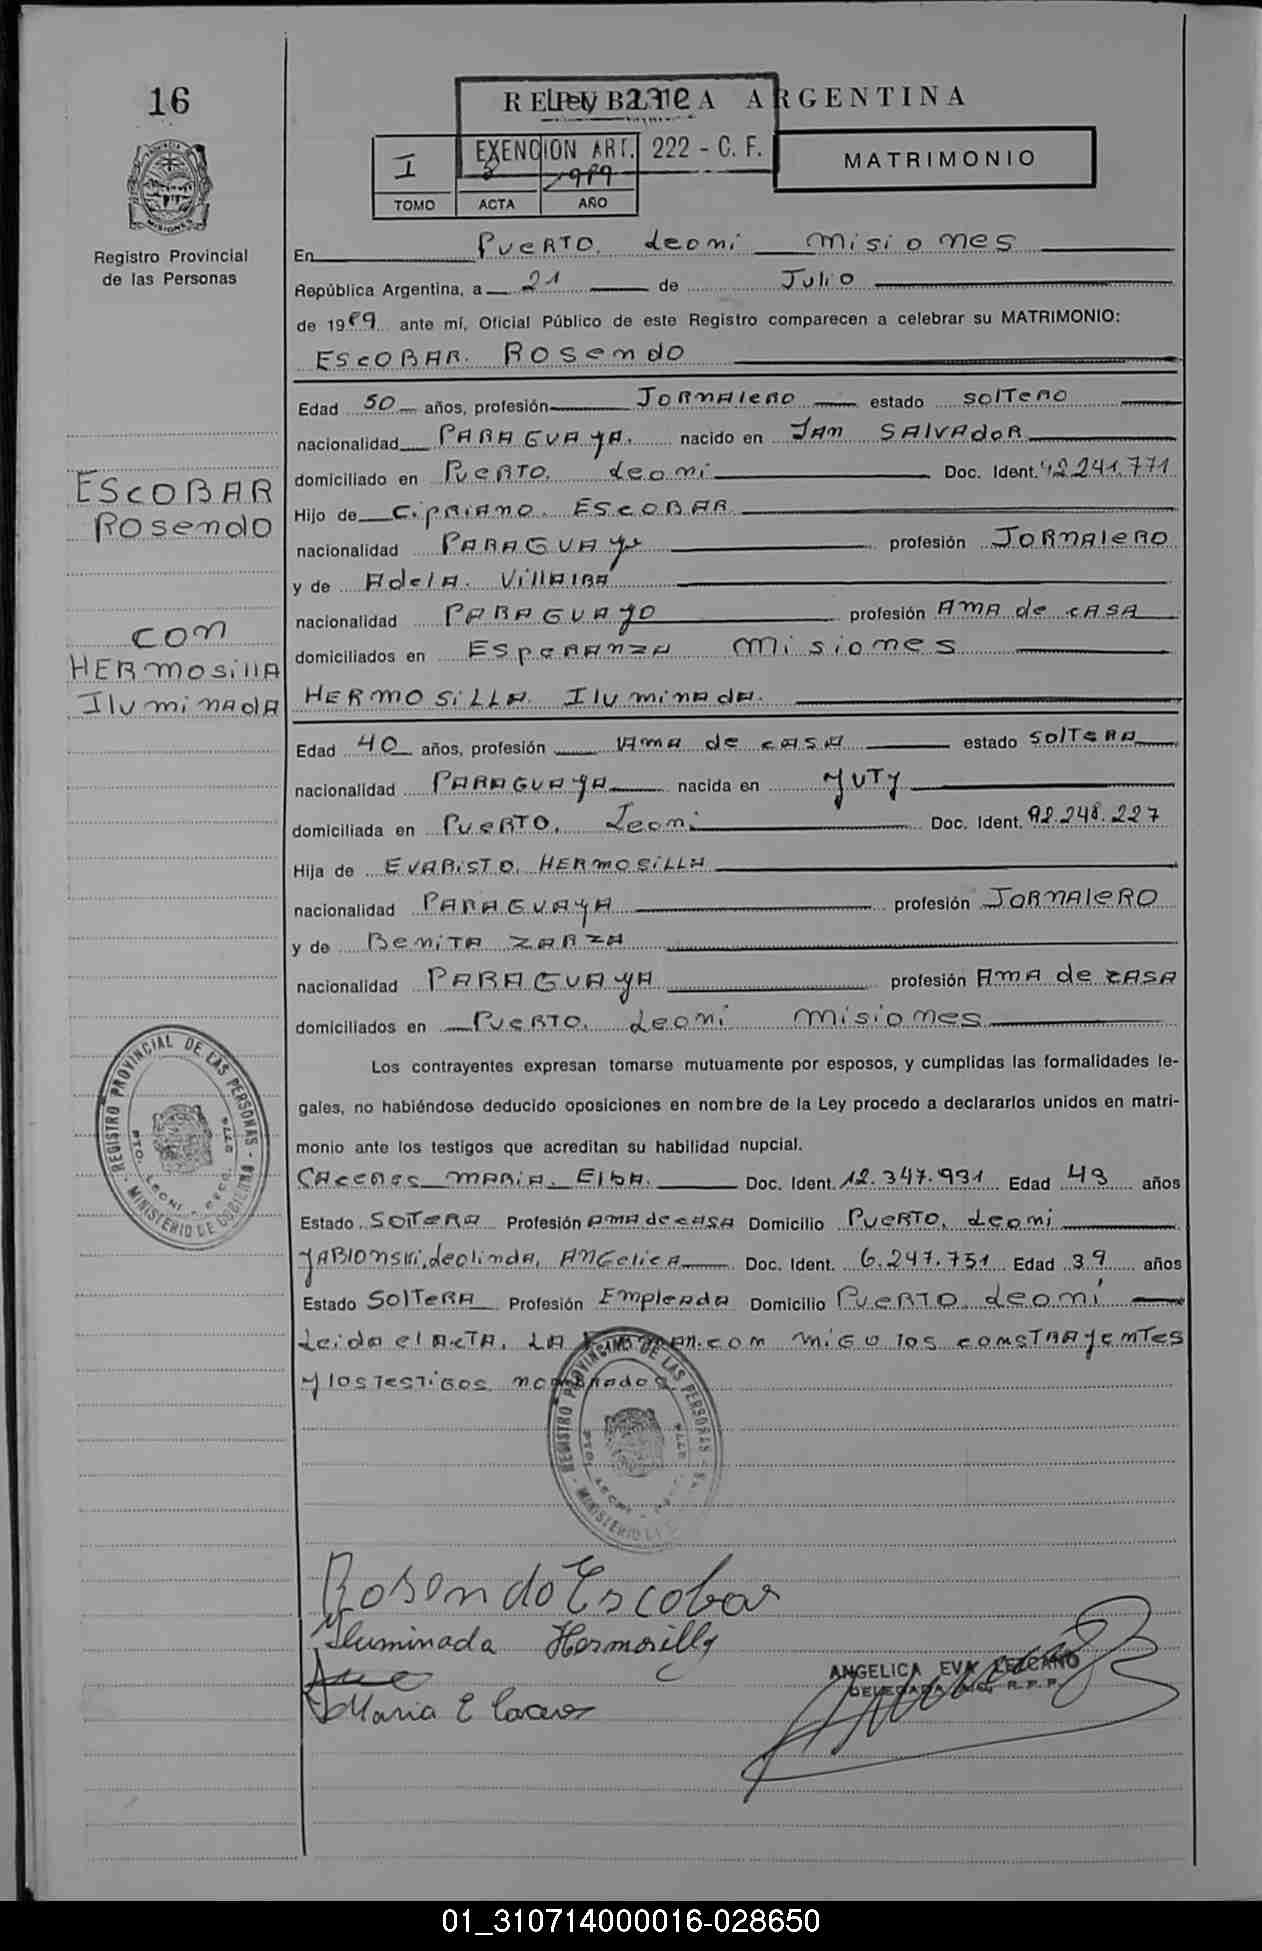 16
REPUBLICA ARGENTINA
Ley 2970
EXENCION ART. 222 - C. F.
MATRIMONIO
I 8 1989
TOMO ACTA AÑO
Registro Provincial
de las Personas
En Puerto Leoni Misiones
República Argentina, a 21 de Julio
de 1989 ante mí, Oficial Público de este Registro comparecen a celebrar su MATRIMONIO:
ESCOBAR Rosendo
Edad 50 años, profesión Jornalero estado Soltero
nacionalidad Paraguaya. nacido en San Salvador
domiciliado en Puerto Leoni Doc. Ident. 92.241.771
Hijo de Cipriano Escobar
nacionalidad Paraguayo profesión Jornalero
y de Adela Villalba
nacionalidad Paraguayo profesión Ama de casa
domiciliados en Esperanza Misiones
ESCOBAR
Rosendo
con
HERMOSILLA
Iluminada
HERMOSILLA Iluminada.
Edad 40 años, profesión Ama de casa estado Soltera
nacionalidad Paraguaya nacida en Yuty
domiciliada en Puerto Leoni Doc. Ident. 92.248.227
Hija de Evaristo Hermosilla
nacionalidad Paraguaya profesión Jornalero
y de Benita Zarza
nacionalidad Paraguaya profesión Ama de casa
domiciliados en Puerto Leoni Misiones
Los contrayentes expresan tomarse mutuamente por esposos, y cumplidas las formalidades le-
gales, no habiéndose deducido oposiciones en nombre de la Ley procedo a declararlos unidos en matri-
monio ante los testigos que acreditan su habilidad nupcial.
Caceres Maria Elba. Doc. Ident. 12.347.991 Edad 43 años
Estado Soltera Profesión Ama de casa Domicilio Puerto Leoni
Jablonski Leolinda, Angelica Doc. Ident. 6.247.751 Edad 39 años
Estado Soltera Profesión Empleada Domicilio Puerto Leoni
Leida el acta, la firman con migo los constrayentes
y los testigos nombrados
REGISTRO PROVINCIAL DE LAS PERSONAS - MINISTERIO DE GOBIERNO
PTO. LEONI
REGISTRO PROVINCIAL DE LAS PERSONAS - MINISTERIO DE
PTO. LEONI
Rosendo Escobar
Iluminada Hermosilla
Maria E Caceres
ANGELICA EVA LEZCANO
DELEGADA R.P.P.
01_310714000016-028650